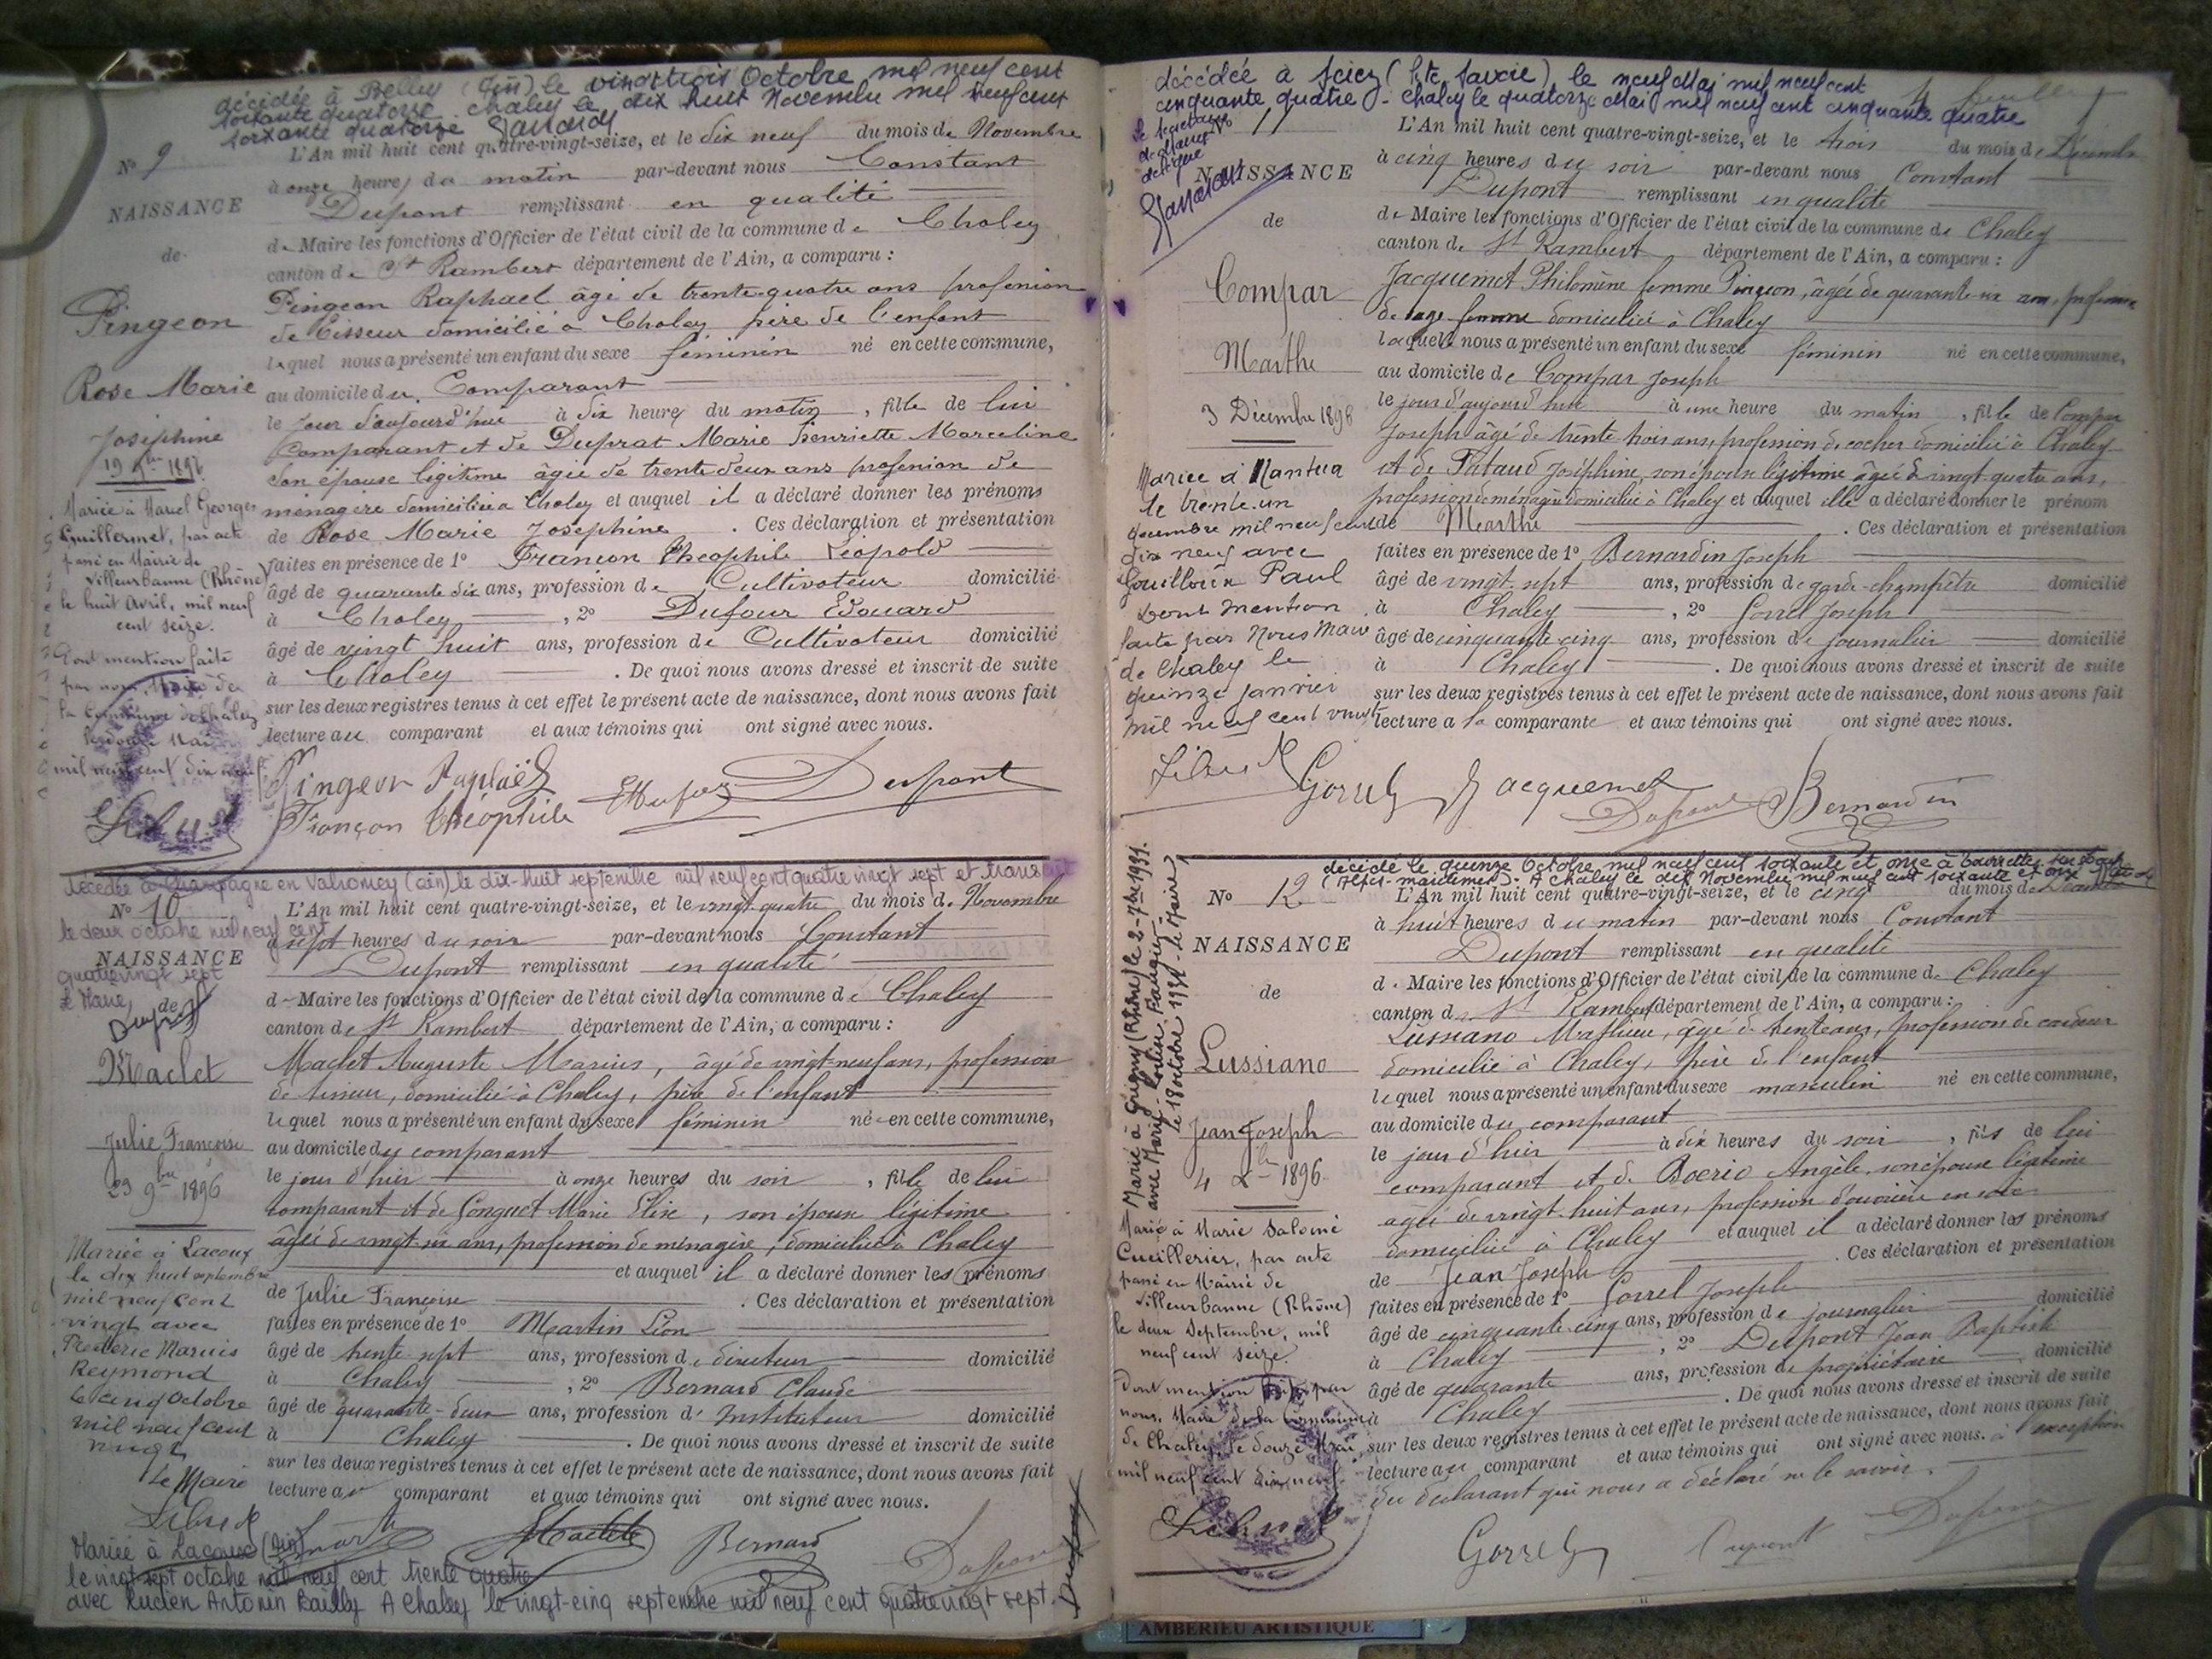 décédée à Belley (Ain) le vingt trois Octobre mil neuf cent
soixante quatorze. Chaley le dix huit Novembre mil neuf cent
soixante quatorze.
L'An mil huit cent quatre-vingt-seize, et le dix neuf du mois de Novembre
N° 9
à onze heures du matin par-devant nous Constant
NAISSANCE
Dupont remplissant en qualité
de Maire les fonctions d'Officier de l'état civil de la commune de Chaley
de
canton de St Rambert département de l'Ain, a comparu :
Pingeon Raphael âgé de trente quatre ans profession
Pingeon
de Tisseur domicilié à Chaley père de l'enfant
lequel nous a présenté un enfant du sexe féminin né en cette commune,
Rose Marie
au domicile du Comparant
le jour d'aujourd'hui à dix heures du matin, fille de lui
Joséphine
comparant et de Duprat Marie Henriette Marceline
19 9bre 1896
son épouse légitime âgée de trente deux ans profession de
ménagère domiciliée à Chaley et auquel il a déclaré donner les prénoms
de Rose Marie Joséphine . Ces déclaration et présentation
faites en présence de 1° Françon Théophile Léopold
âgé de quarante dix ans, profession de Cultivateur domicilié
à Chaley , 2° Dufour Edouard
âgé de vingt huit ans, profession de Cultivateur domicilié
à Chaley . De quoi nous avons dressé et inscrit de suite
sur les deux registres tenus à cet effet le présent acte de naissance, dont nous avons fait
lecture au comparant et aux témoins qui ont signé avec nous.
Mariée à Marcel Georges
Guillermet, par acte
passé en Mairie de
Villeurbanne (Rhône)
le huit Avril, mil neuf
cent seize.
Dont mention faite
par nous, Maire de
la Commune de Chaley
le douze Mai
mil neuf cent dix neuf
Pingeon Raphaël
Dupont
Françon Théophile
décédée à Champagne en Valromey (ain) le dix-huit septembre mil neuf cent quatre vingt sept et transcrit
N° 10
L'An mil huit cent quatre-vingt-seize, et le vingt quatre du mois de Novembre
le deux octobre mil neuf cent
à sept heures du soir par-devant nous Constant
NAISSANCE
quatre vingt sept
Dupont remplissant en qualité
le Maire
de
de Maire les fonctions d'Officier de l'état civil de la commune de Chaley
canton de St Rambert département de l'Ain, a comparu :
Maclet
Maclet Auguste Marius, âgé de vingt-neuf ans, profession
de tisseur, domicilié à Chaley, père de l'enfant
lequel nous a présenté un enfant du sexe féminin né en cette commune,
Julie Françoise
au domicile du comparant
23 9bre 1896
le jour d'hier à onze heures du soir, fille de lui
comparant et de Marie Elise, son épouse légitime
âgée de vingt-six ans, profession de ménagère, domiciliée à Chaley
et auquel il a déclaré donner les prénoms
de Julie Françoise . Ces déclaration et présentation
faites en présence de 1° Martin Léon
âgé de trente-sept ans, profession de directeur domicilié
à Chaley , 2° Bernard Claude
âgé de quarante-deux ans, profession d'Instituteur domicilié
à Chaley . De quoi nous avons dressé et inscrit de suite
sur les deux registres tenus à cet effet le présent acte de naissance, dont nous avons fait
lecture au comparant et aux témoins qui ont signé avec nous.
Mariée à Lacoux
le dix huit septembre
mil neuf cent
vingt avec
Frédéric Marius
Reymond
le cinq Octobre
mil neuf cent
vingt
Le Maire
Bernard
Mariée à Lacoux (Ain)
le vingt sept octobre mil neuf cent trente quatre
avec Lucien Antonin Bailly A Chaley le vingt-cinq septembre mil neuf cent quatre vingt sept.
décédée à Sciez (Hte Savoie), le neuf Mai mil neuf cent
cinquante quatre - Chaley le quatorze Mai mil neuf cent cinquante quatre
le secrétaire
de Mairie
délégué
N° 11
L'An mil huit cent quatre-vingt-seize, et le trois du mois de Décembre
à cinq heures du soir par-devant nous Constant
NAISSANCE
Dupont remplissant en qualité
de
de Maire les fonctions d'Officier de l'état civil de la commune de Chaley
canton de St Rambert département de l'Ain, a comparu :
Compar
Jacquemet Philomène femme Pingeon, âgée de quarante-six ans, profession
de sage femme domiciliée à Chaley
Marthe
laquelle nous a présenté un enfant du sexe féminin né en cette commune,
au domicile de Compar Joseph
3 Décembre 1896
le jour d'aujourd'hui à une heure du matin, fille de Compar
Joseph âgé de trente trois ans, profession de cocher domicilié à Chaley
et de Joséphine, son épouse légitime âgée de vingt-quatre ans,
profession de ménagère domiciliée à Chaley et auquel elle a déclaré donner le prénom
de Marthe . Ces déclaration et présentation
faites en présence de 1° Bernardin Joseph
âgé de vingt-sept ans, profession de garde-champêtre domicilié
à Chaley , 2° Gorrel Joseph
âgé de cinquante cinq ans, profession de journalier domicilié
à Chaley . De quoi nous avons dressé et inscrit de suite
sur les deux registres tenus à cet effet le présent acte de naissance, dont nous avons fait
lecture à la comparante et aux témoins qui ont signé avec nous.
Mariée à Nantua
le trente-un
décembre mil neuf cent
dix neuf avec
Paul
Dont mention
faite par Nous Maire
de Chaley le
quinze janvier
mil neuf cent vingt
Gorrel Jacquemet
Dupont Bernardin
décédé le quinze Octobre mil neuf cent soixante et onze à Tourrettes sur Loup
(Alpes-maritimes). A Chaley le dix Novembre mil neuf cent soixante et onze
N° 12
L'An mil huit cent quatre-vingt-seize, et le cinq du mois de Décembre
à huit heures du matin par-devant nous Constant
NAISSANCE
Dupont remplissant en qualité
de Maire les fonctions d'Officier de l'état civil de la commune de Chaley
de
canton de St Rambert département de l'Ain, a comparu :
Lussiano
Lussiano Mathieu, âgé de trente ans, profession de cardeur
domicilié à Chaley, père de l'enfant
lequel nous a présenté un enfant du sexe masculin né en cette commune,
Jean Joseph
au domicile du comparant
4 Xbre 1896
le jour d'hier à dix heures du soir, fils de lui
comparant et de Boerio Angèle, son épouse légitime
âgée de vingt-huit ans, profession d'ouvrière en soie
domiciliée à Chaley et auquel il a déclaré donner les prénoms
de Jean Joseph . Ces déclaration et présentation
faites en présence de 1° Gorrel Joseph
âgé de cinquante-cinq ans, profession de journalier domicilié
à Chaley , 2° Dupont Jean Baptiste
âgé de quarante ans, profession de propriétaire domicilié
à Chaley . De quoi nous avons dressé et inscrit de suite
sur les deux registres tenus à cet effet le présent acte de naissance, dont nous avons fait
lecture au comparant et aux témoins qui ont signé avec nous. à l'exception
du déclarant qui nous a déclaré ne le savoir.
Marié à Grigny (Rhône) le 2-7bre 1931.
avec Marie-Louise
le 18 octobre 1931 - le Maire,
Marié à Marie Salomé
Cueillerier, par acte
passé en Mairie de
Villeurbanne (Rhône)
le deux Septembre, mil
neuf cent seize.
Dont mention faite par
nous, Maire de la Commune
de Chaley, le douze Mai,
mil neuf cent dix neuf
Gorrel
Dupont
AMBERIEU ARTISTIQUE